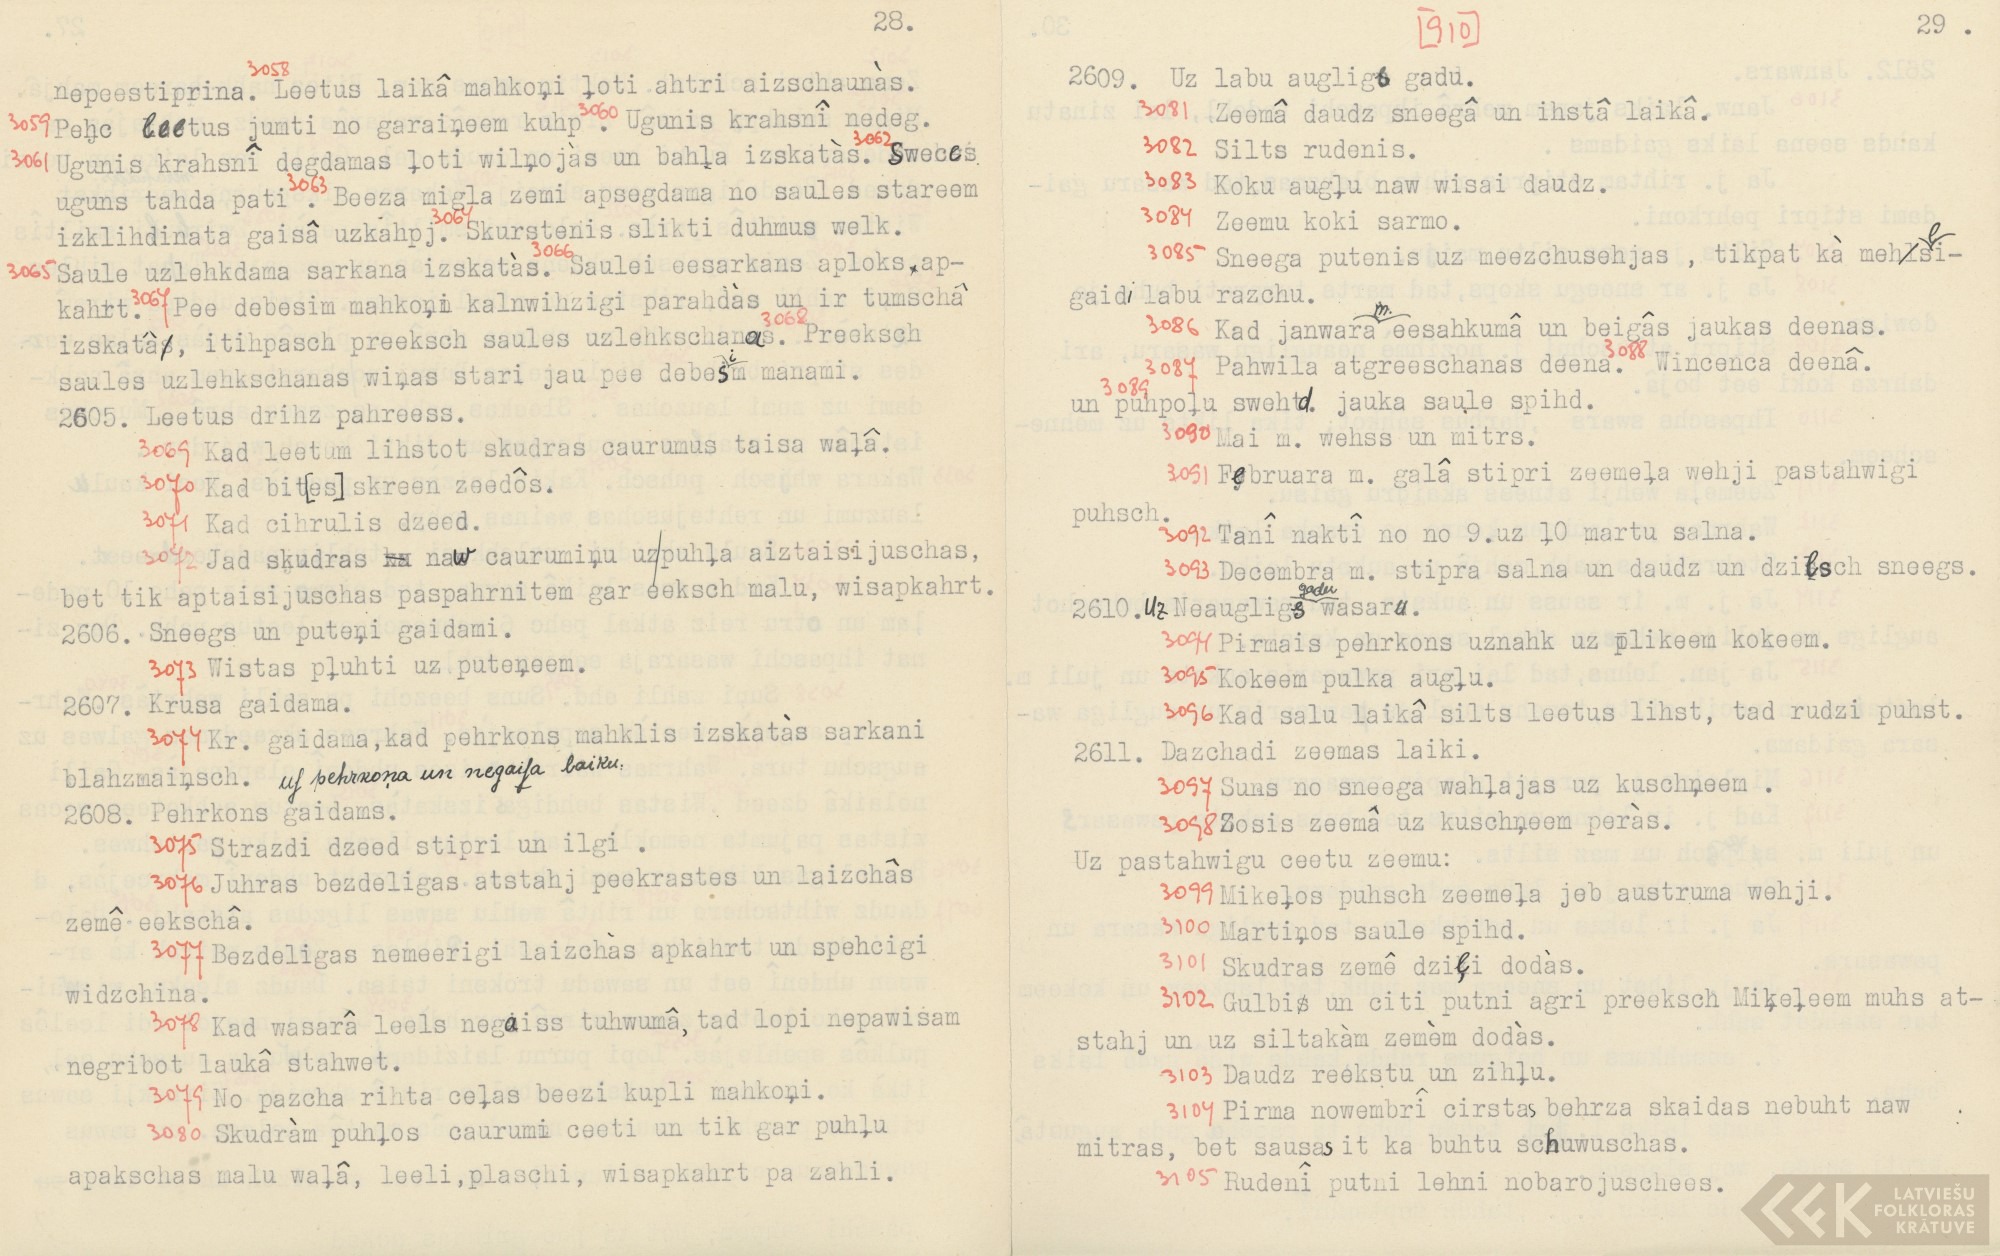 28.
3058
nepeestiprina. Leetus laikâ mahkoņi ļoti ahtri aizschaunàs.
3059 Peḩc leetus jumti no garaiņeem kuhp 3060. Ugunis krahsnî nedeg.
3061 Ugunis krahsnî degdamas ļoti wilņojàs un bahļa izskatàs. 3062 Sweces
uguns tahda pati 3063. Beeza migla zemi apsegdama no saules stareem
izklihdinata gaisâ uzkahpj. 3064 Skurstenis slikti duhmus welk.
3065 Saule uzlehkdama sarkana izskatàs. 3066 Saulei eesarkans aploks ap-
kahrt. 3067 Pee debesim mahkoņi kalnwihzigi parahdàs un ir tumschâ
izskatâ, itihpasch preeksch saules uzlehkschanas. 3068 Preeksch
saules uzlehkschanas wiņas stari jau pee debesim manami.
2605. Leetus drihz pahreess.
3069 Kad leetum lihstot skudras caurumus taisa waļâ.
3070 Kad bit[es] skreen zeedôs.
3071 Kad cihrulis dzeed.
3072 Jad skudras naw caurumiņu uz puhļa aiztaisijuschas,
bet tik aptaisijuschas paspahrnitem gar eeksch malu, wisapkahrt.
2606. Sneegs un puteņi gaidami.
3073 Wistas pļuhti uz puteņeem.
2607. Krusa gaidama.
3074 Kr. gaidama, kad pehrkons mahklis izskatàs sarkani
blahzmaiņsch. uz pehrkoņa un negaisa laiku.
2608. Pehrkons gaidams.
3075 Strazdi dzeed stipri un ilgi .
3076 Juhras bezdeligas atstahj peekrastes un laizchâs
zemê eekschâ.
3077 Bezdeligas nemeerigi laizchàs apkahrt un spehcigi
widzchina.
3078 Kad wasarâ leels negaiss tuhwumâ, tad lopi nepawisam
negribot laukâ stahwet.
3079 No pazcha rihta ceļas beezi kupli mahkoņi.
3080 Skudràm puhļos caurumi ceeti un tik gar puhļu
apakschas malu waļâ, leeli, plaschi, wisapkahrt pa zahli.
[910]
29 .
2609. Uz labu augligo gadu.
3081 Zeemâ daudz sneegâ un ihstâ laikâ.
3082 Silts rudenis.
3083 Koku augļu naw wisai daudz.
3084 Zeemu koki sarmo.
3085 Sneega putenis uz meezchusehjas , tikpat kà mehsli-
gaidi labu razchu.
3086 Kad janwara m. eesahkumâ un beigâs jaukas deenas.
3087 Pahwila atgreeschanas deena. 3088 Wincenca deenâ.
3089
un puhpoļu swehtd. jauka saule spihd.
3090 Mai m. wehss un mitrs.
3091 Februara m. galâ stipri zeemeļa wehji pastahwigi
puhsch.
3092 Tanî naktî no no 9.uz l0 martu salna.
3093 Decembra m. stipra salna un daudz un dziļsch sneegs.
2610. Uz Neaugligs gadu wasaru.
3094 Pirmais pehrkons uznahk uz plikeem kokeem.
3095 Kokeem pulka augļu.
3096 Kad salu laikâ silts leetus lihst, tad rudzi puhst.
2611. Dazchadi zeemas laiki.
3097 Suns no sneega wahļajas uz kuschņeem .
3098 Zosis zeemâ uz kuschņeem peràs.
Uz pastahwigu ceetu zeemu:
3099 Mikeļos puhsch zeemeļa jeb austruma wehji.
3100 Martiņos saule spihd.
3101 Skudras zemê dziļi dodàs.
3102 Gulbis un citi putni agri preeksch Miķeļeem muhs at-
stahj un uz siltakàm zemèm dodàs.
3103 Daudz reekstu un zihļu.
3104 Pirma nowembrî cirstas behrza skaidas nebuht naw
mitras, bet sausas it ka buhtu schuwuschas.
3105 Rudenî putni lehni nobarojuschees.
LATVIEŠU
FOLKLORAS
KRĀTUVE